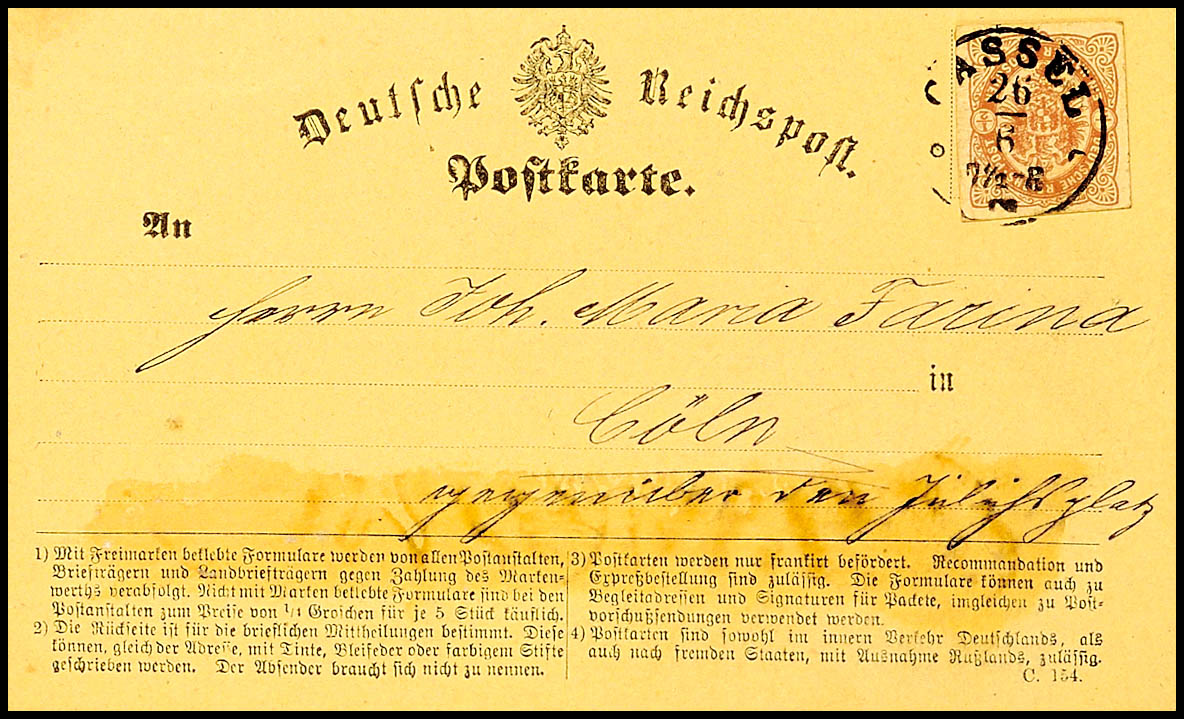 Deutsche Reichspost.
Postkarte.
CASSEL
26
6
An
Herrn Joh. Maria Farina
in
Cöln
gegenüber den Jülichsplatz
1) Mit Freimarken beklebte Formulare werden von allen Postanstalten,
Briefträgern und Landbriefträgern gegen Zahlung des Marken-
werths verabfolgt. Nicht mit Marken beklebte Formulare sind bei den
Postanstalten zum Preise von 1/4 Groschen für je 5 Stück käuflich.
2) Die Rückseite ist für die brieflichen Mittheilungen bestimmt. Diese
können, gleich der Adresse, mit Tinte, Bleifeder oder farbigem Stifte
geschrieben werden. Der Absender braucht sich nicht zu nennen.
3) Postkarten werden nur frankirt befördert. Recommandation und
Expreßbestellung sind zulässig. Die Formulare können auch zu
Begleitadressen und Signaturen für Packete, imgleichen zu Post-
vorschußsendungen verwendet werden.
4) Postkarten sind sowohl im innern Verkehr Deutschlands, als
auch nach fremden Staaten, mit Ausnahme Rußlands, zulässig.
C. 154.